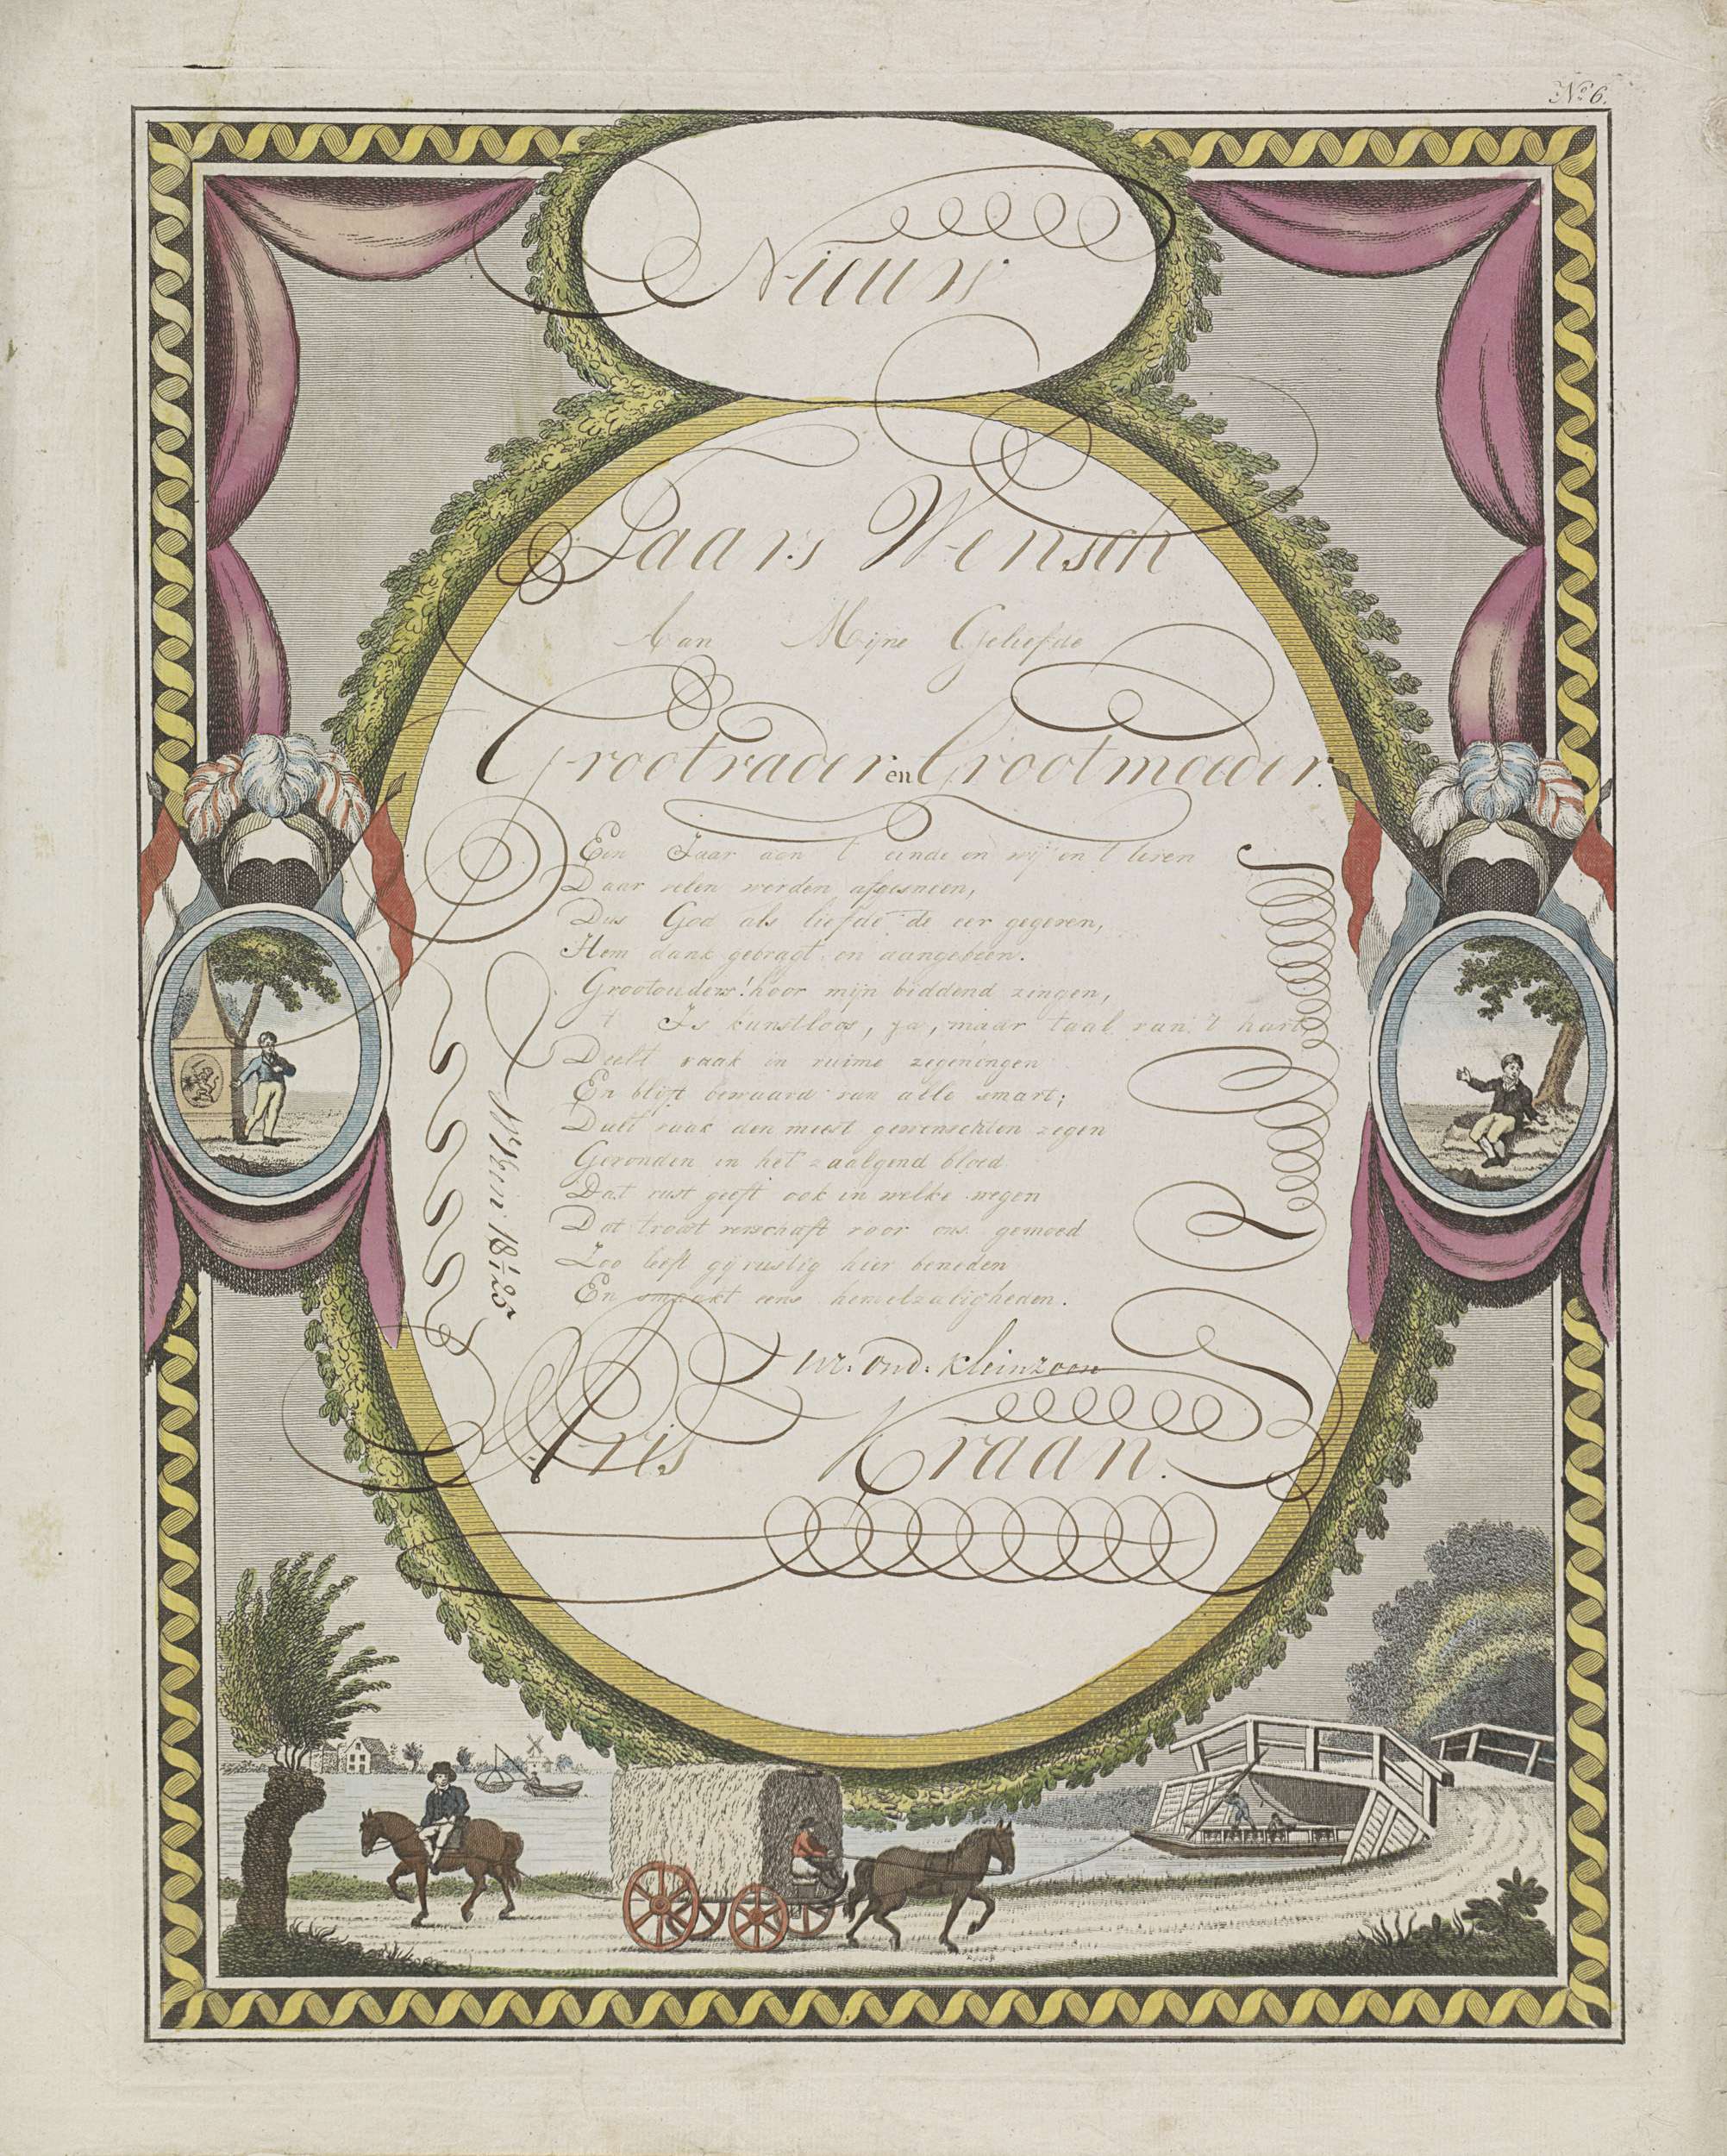 No 6.
Nieuw
Jaars Wensch
Aan Mijne Geliefde
Grootvader en Grootmoeder.
Een Jaar aan 't einde en wij en 't leven
Daar velen werden afgesneen,
Dus God als liefde de eer gegeven,
Hem dank gebragt en aangebeen.
Grootouders! hoor mijn biddend zingen,
't Is kunstloos, ja, maar taal van 't hart
Deelt vaak in ruime zegeningen
En blijft bewaard van alle smart;
Dult vaak den meest gewenschten zegen
Gevonden in het zaalgend bloed
Dat rust geeft ook in welke wegen
Dat troost verschaft voor ons gemoed
Zoo leeft gij rustig hier beneden
En smaakt eens hemelzaligheden.
1825
kleinzoon
Aris Kraan.